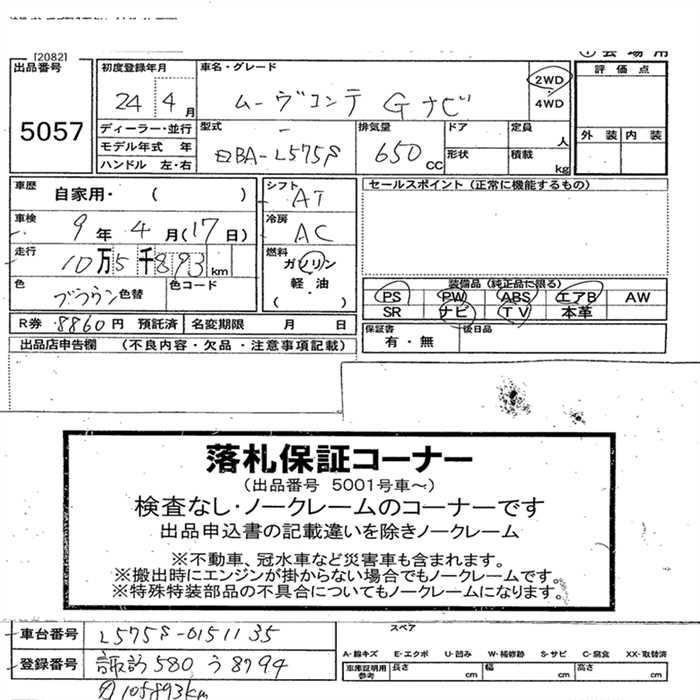 [2082]
① 会場用
出品番号
5057
初度登録年月
24 4月
車名・グレード
ムーヴコンテ Gナビ
2WD
4WD
評価点
ディーラー・並行
モデル年式 年
ハンドル 左・右
型式
DBA-L575S
排気量
650 CC
ドア
形状
定員 人
積載 kg
外装 内装
車歴
自家用・ ( )
車検
9年 4月(17日)
走行
10万5千893km
色
ブラウン 色替
色コード
シフト
AT
冷房
AC
燃料
ガソリン
軽・油
( )
セールスポイント(正常に機能するもの)
装備品(純正品に限る)
PS PW ABS エアB AW
SR ナビ TV 本革
R券 8860円 預託済
名変期限 月 日
保証書
有・無
後日品
出品店申告欄 (不良内容・欠品・注意事項記載)
落札保証コーナー
(出品番号 5001号車~)
検査なし・ノークレームのコーナーです
出品申込書の記載違いを除きノークレーム
※不動車、冠水車など災害車も含まれます。
※搬出時にエンジンが掛からない場合でもノークレームです。
※特殊特装部品の不具合についてもノークレームになります。
車台番号
L575S-0151135
登録番号
諏訪 580 う 8794
105893km
スペア
A-線キズ E-エクボ U-凹み W-補修跡 S-サビ C-腐食 XX-取替済
車庫証明用参考
長さ cm
幅 cm
高さ cm